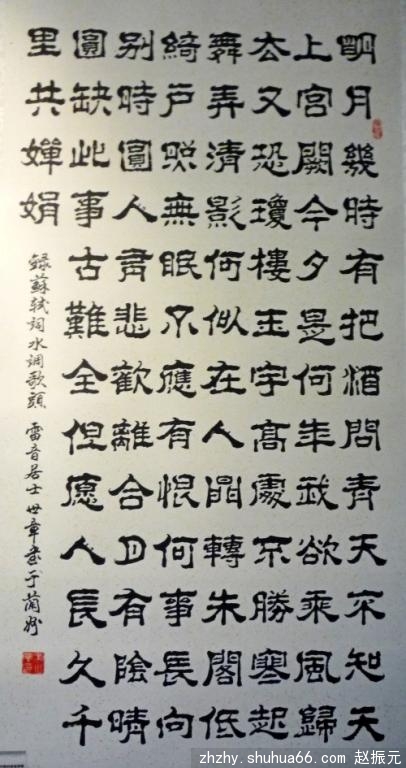 明月幾時有把酒問青天不知天
上宮闕今夕是何年我欲乘風歸
去又恐瓊樓玉宇高處不勝寒起
舞弄清影何似在人間轉朱閣低
綺戶照無眠不應有恨何事長向
别時圓人有悲歡離合月有陰晴
圓缺此事古難全但愿人長久千
里共嬋娟
録蘇軾詞水调歌頭 雷音居士 世章书于蘭州
zhzhy.shuhua66.com 赵振元